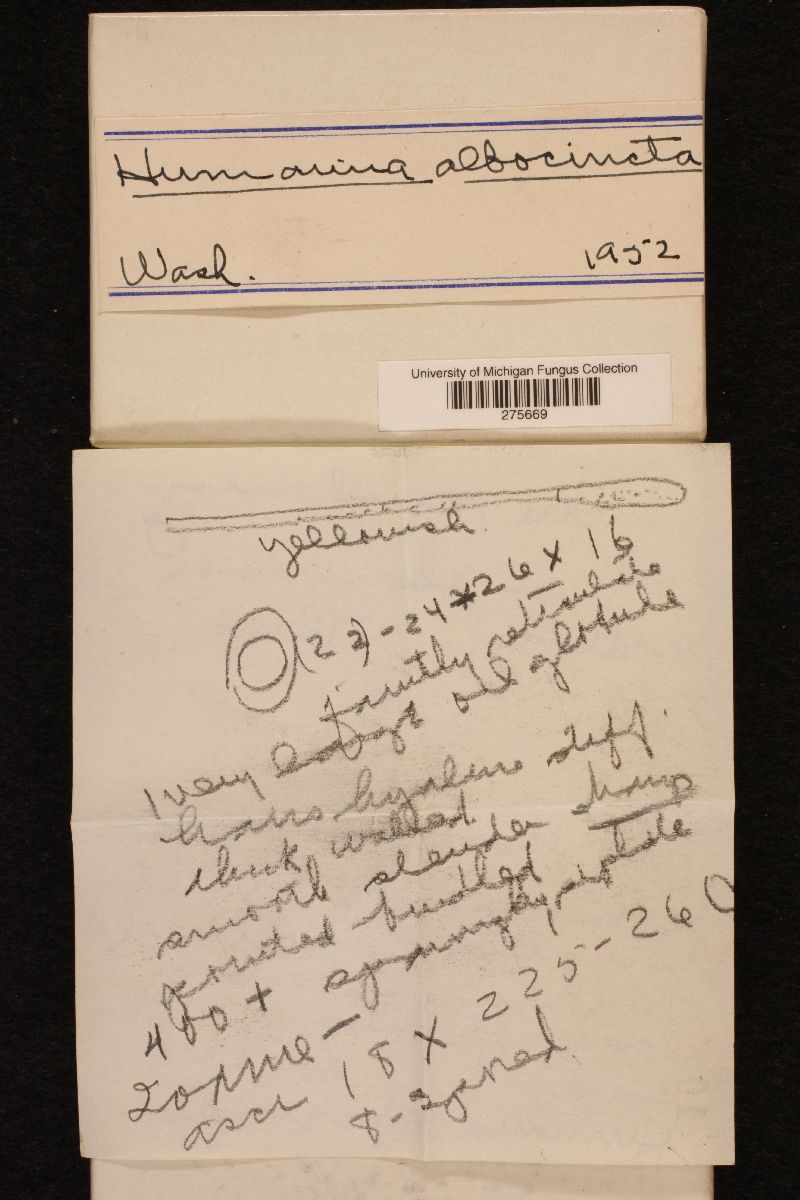 Humarina albocincta
Wash. 1952
University of Michigan Fungus Collection
275669
yellowish
(22)-24-26 X 16
faintly reticulate
1 very large oil globule
hairs hyaline stiff.
thick walled
smooth slender sharp
pointed
400 +
asci 18 X 225-260
8-spored.